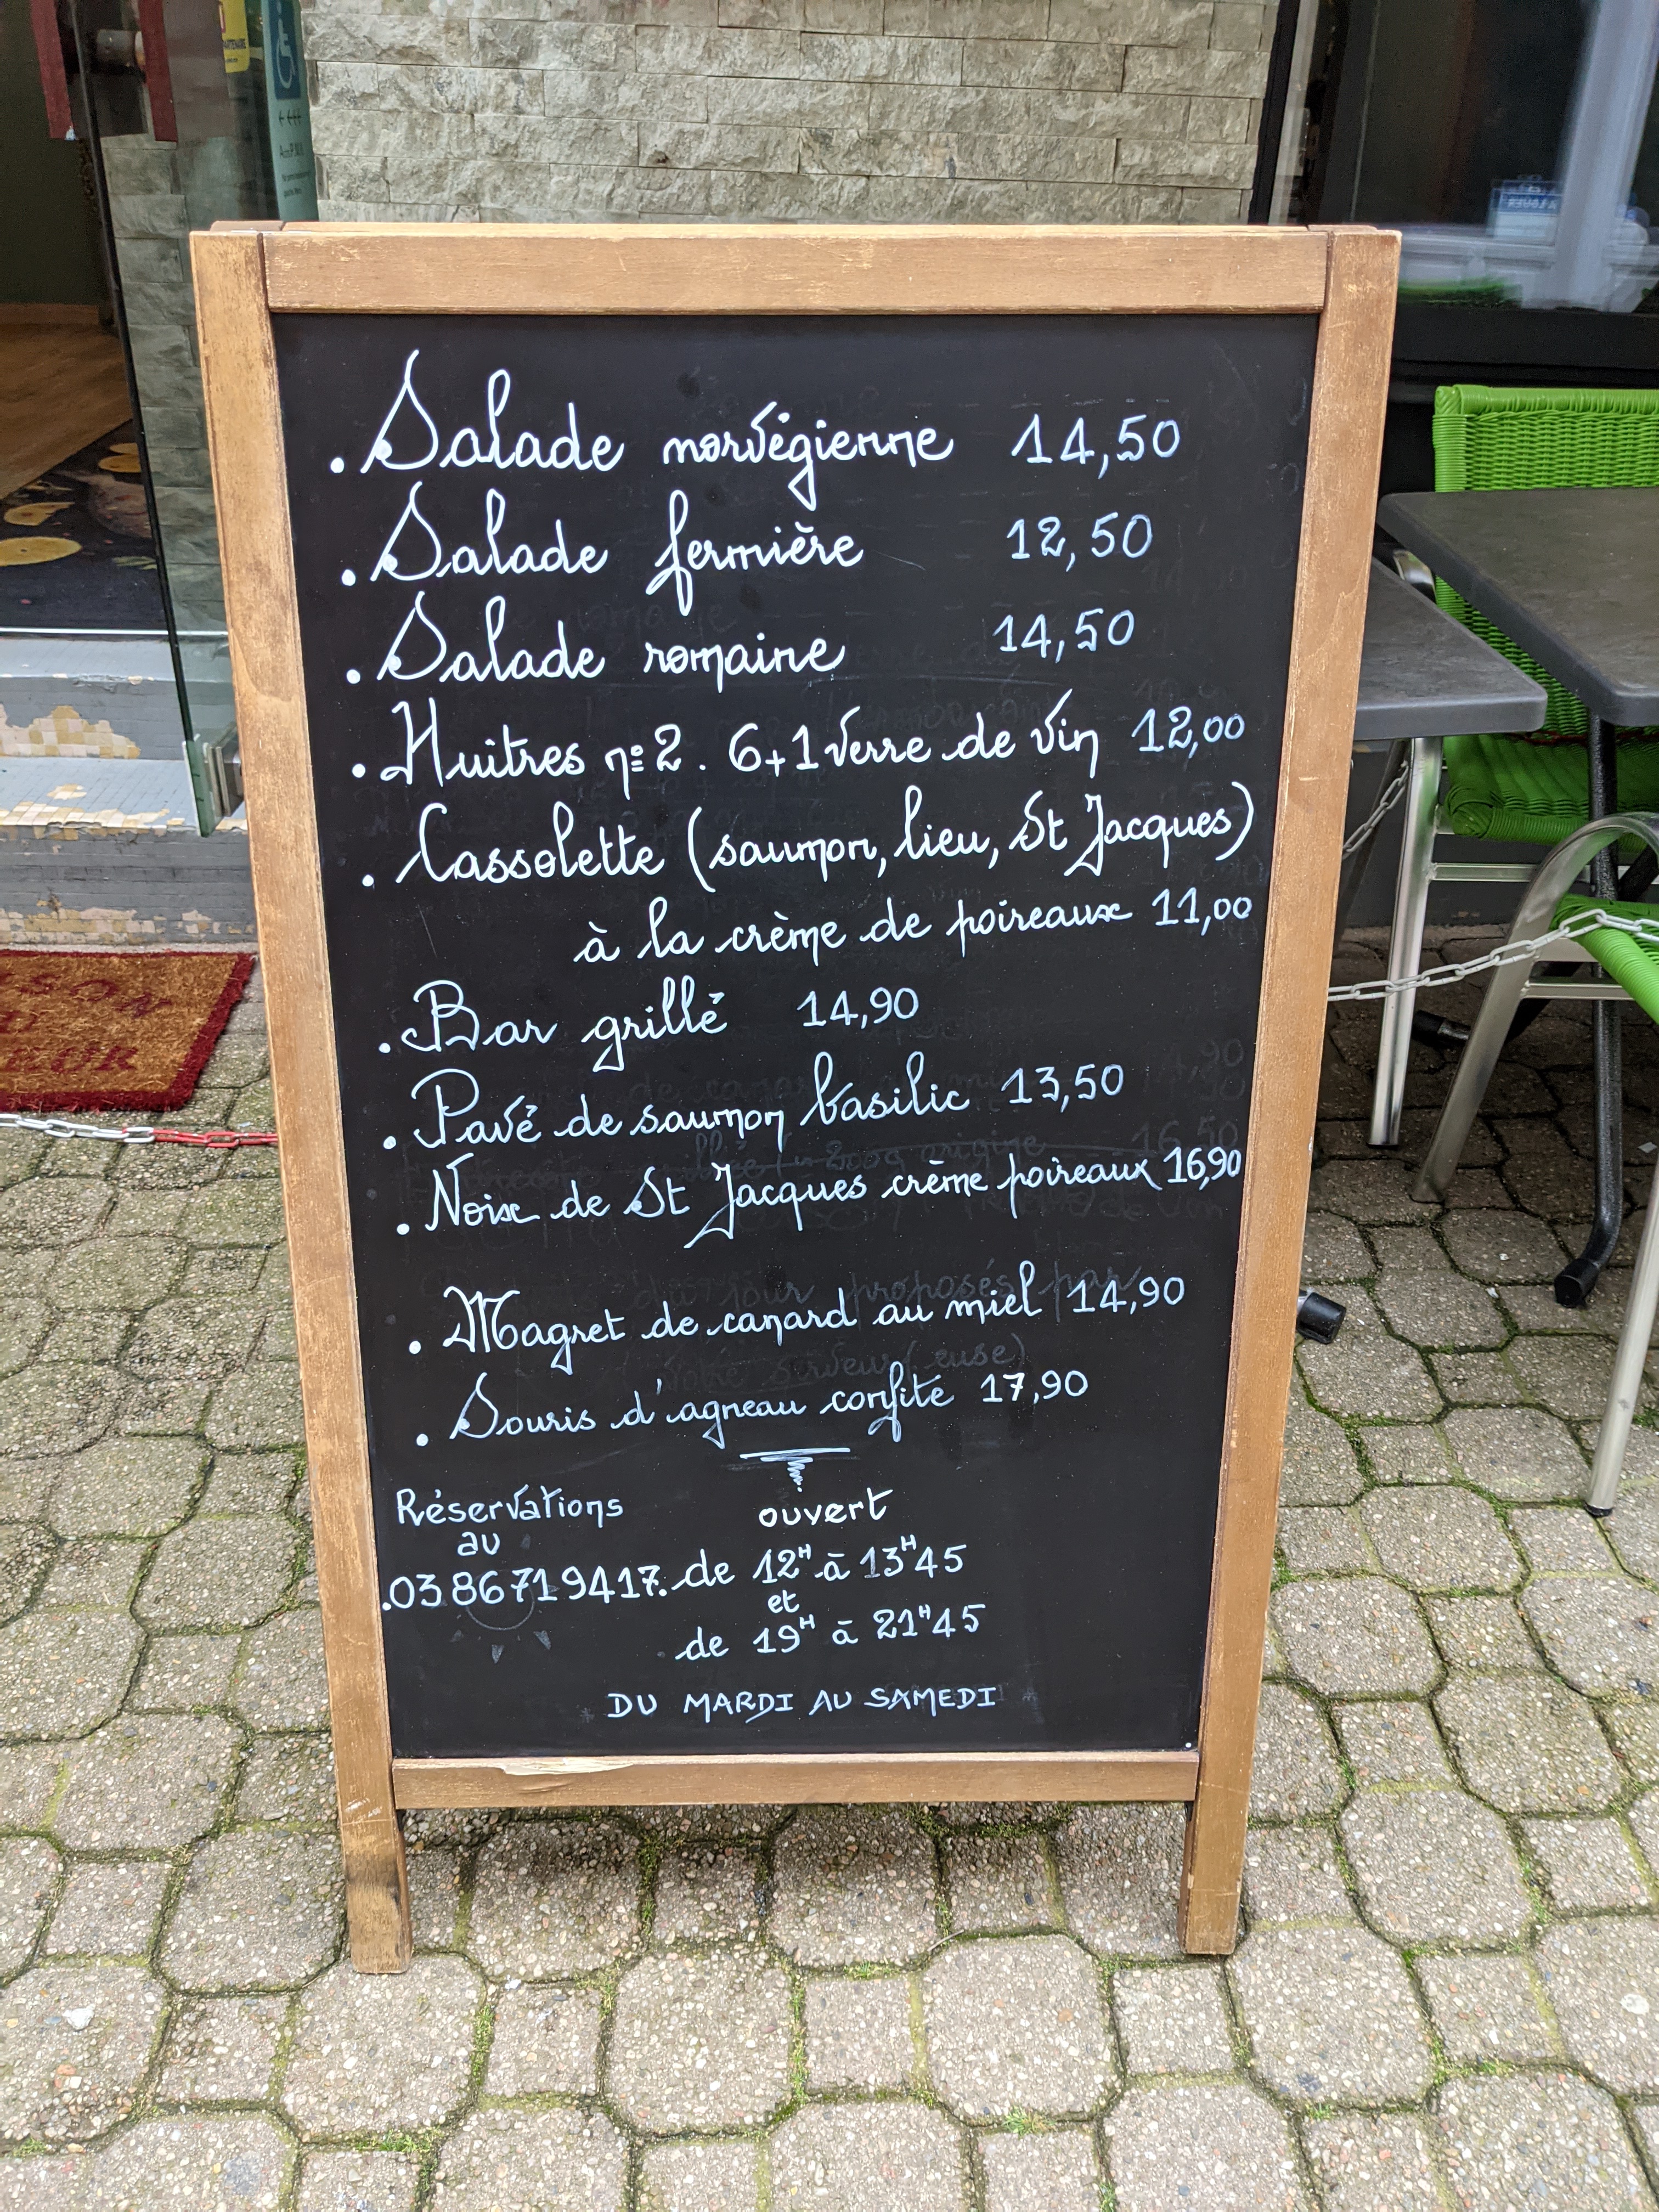 . Salade norvégienne 14,50
. Salade fermière 12,50
. Salade romaine 14,50
. Huitres n° 2 . 6+1 verre de vin 12,00
. Cassolette (saumon, lieu, St Jacques)
à la crème de poireaux 11,00
. Bar grillé 14,90
. Pavé de saumon basilic 13,50
. Noix de St Jacques crème poireaux 16,90
. Magret de canard au miel 14,90
. Souris d'agneau confite 17,90
Réservations
au
.0386719417.
ouvert
de 12H à 13H45
et
de 19H à 21H45
DU MARDI AU SAMEDI